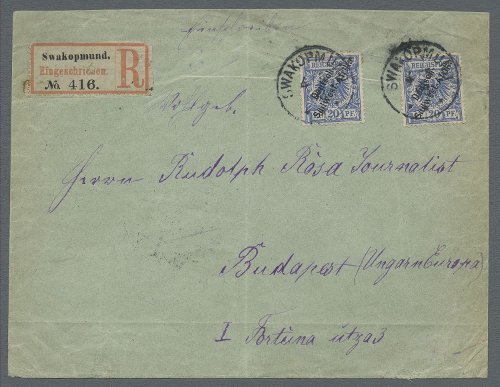 Einschreiben
Swakopmund.
Eingeschrieben.
No. 416.
R
SWAKOPMUND
SWAKOPMUND
REICHSPOST
REICHSPOST
Deutsch-
Südwest-Afrika
Deutsch-
Südwest-Afrika
20 PF.
20 PF.
Herrn Rudolph Rósa Journalist
Budapest (Ungarn Europa)
I Fortuna utza 3